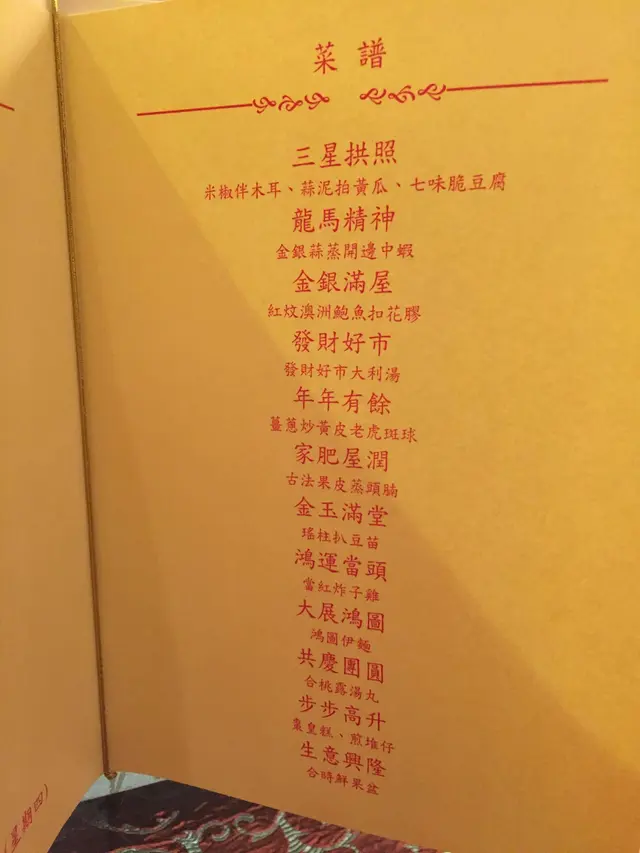 菜譜
三星拱照
米椒伴木耳、蒜泥拍黃瓜、七味脆豆腐
龍馬精神
金銀蒜蒸開邊中蝦
金銀滿屋
紅炆澳洲鮑魚扣花膠
發財好市
發財好市大利湯
年年有餘
薑蔥炒黃皮老虎斑球
家肥屋潤
古法果皮蒸頭腩
金玉滿堂
瑤柱扒豆苗
鴻運當頭
當紅炸子雞
大展鴻圖
鴻圖伊麵
共慶團圓
合桃露湯丸
步步高升
棗皇糕、煎堆仔
生意興隆
合時鮮果盆
星期四）